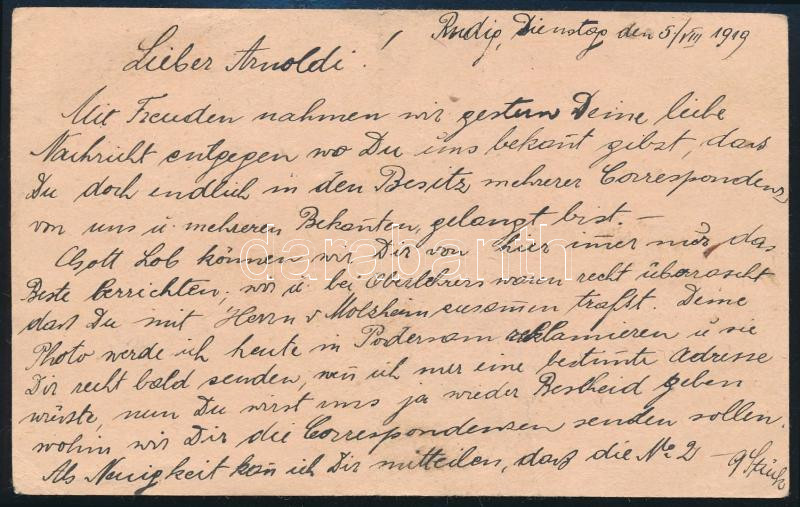 Rudig, Dienstag den 5/VIII 1919
Lieber Arnoldi!
Mit Freuden nahmen wir gestern Deine liebe
Nachricht entgegen wo Du uns bekan̄t gibst, dass
Du doch endlich in den Besitz mehrerer Correspondenz
von uns u. mehreren Bekan̄ten, gelangt bist. –
Gott Lob kön̄en wir Dir von hier im̄er nur das
Beste berrichten, wir u. bei Oberlehrers waren recht überrascht
dass Du mit Herrn v Molzheim zusam̄en trafst. Deine
Photo werde ich heute in Podersam reklamieren u sie
Dir recht bald senden, wen̄ ich nur eine bestim̄te Adresse
wüsste, nun Du wirst uns ja wieder Bescheid geben
wohin wir Dir die Correspondenzen senden sollen.
Als Neuigkeit kan̄ ich Dir mitteilen, dass die No 2 – 9 Stück
darabanth